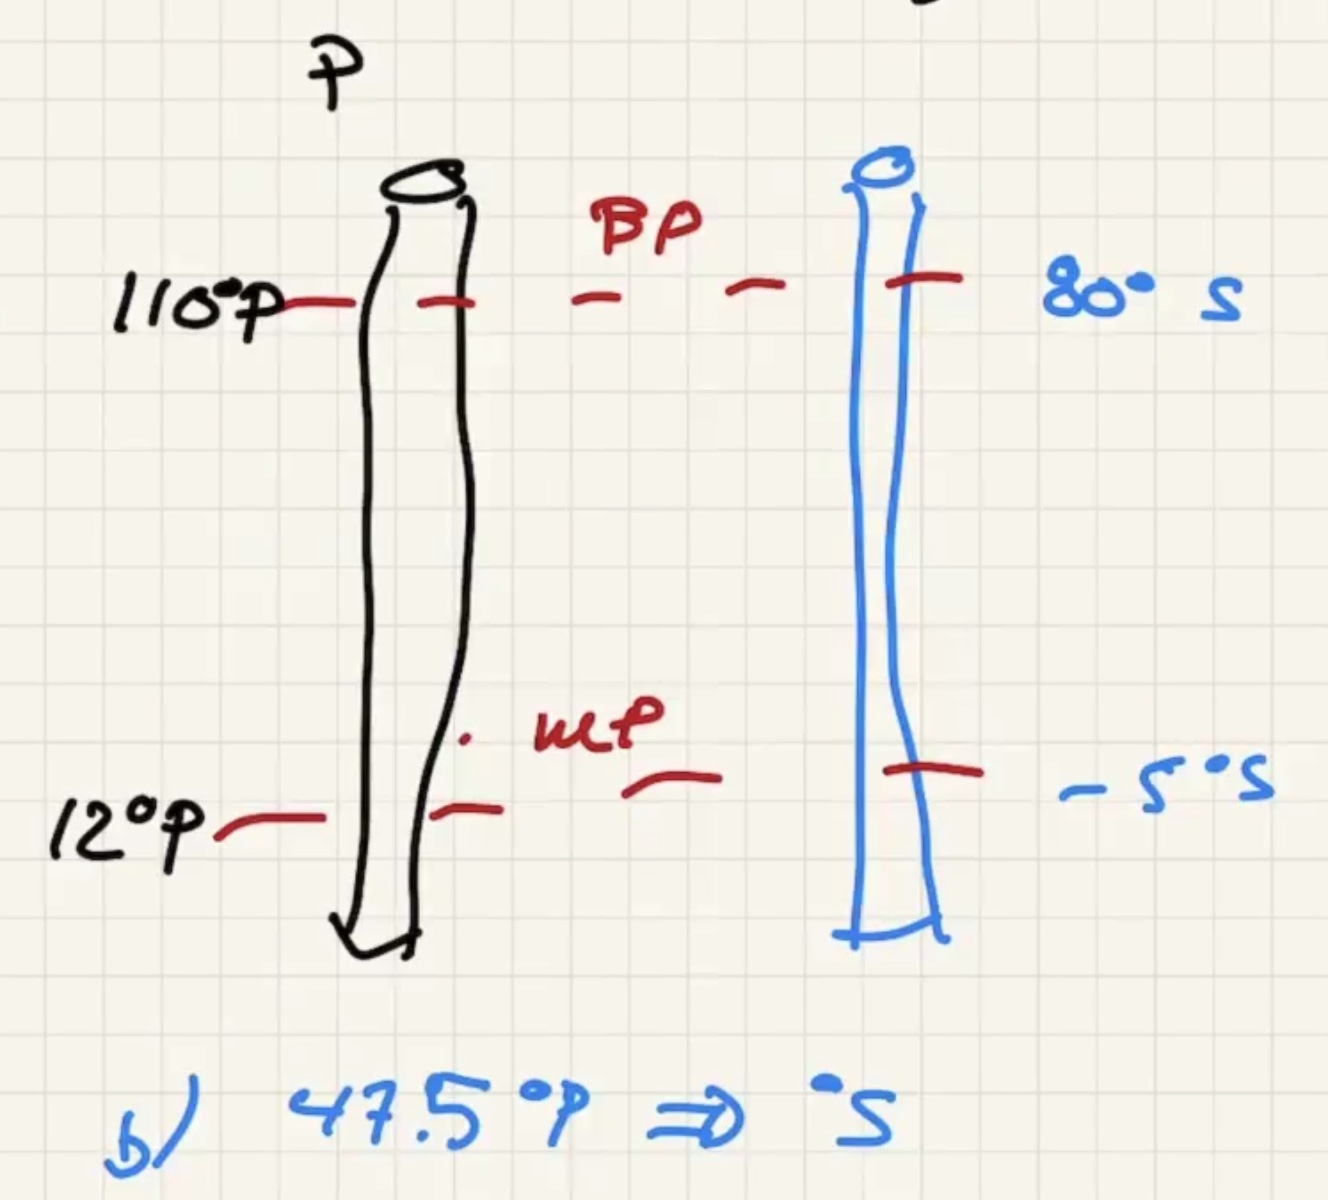 P
BP
110°P
80° S
MP
12°P
- 5°S
b/ 47.5 °P ⇒ °S